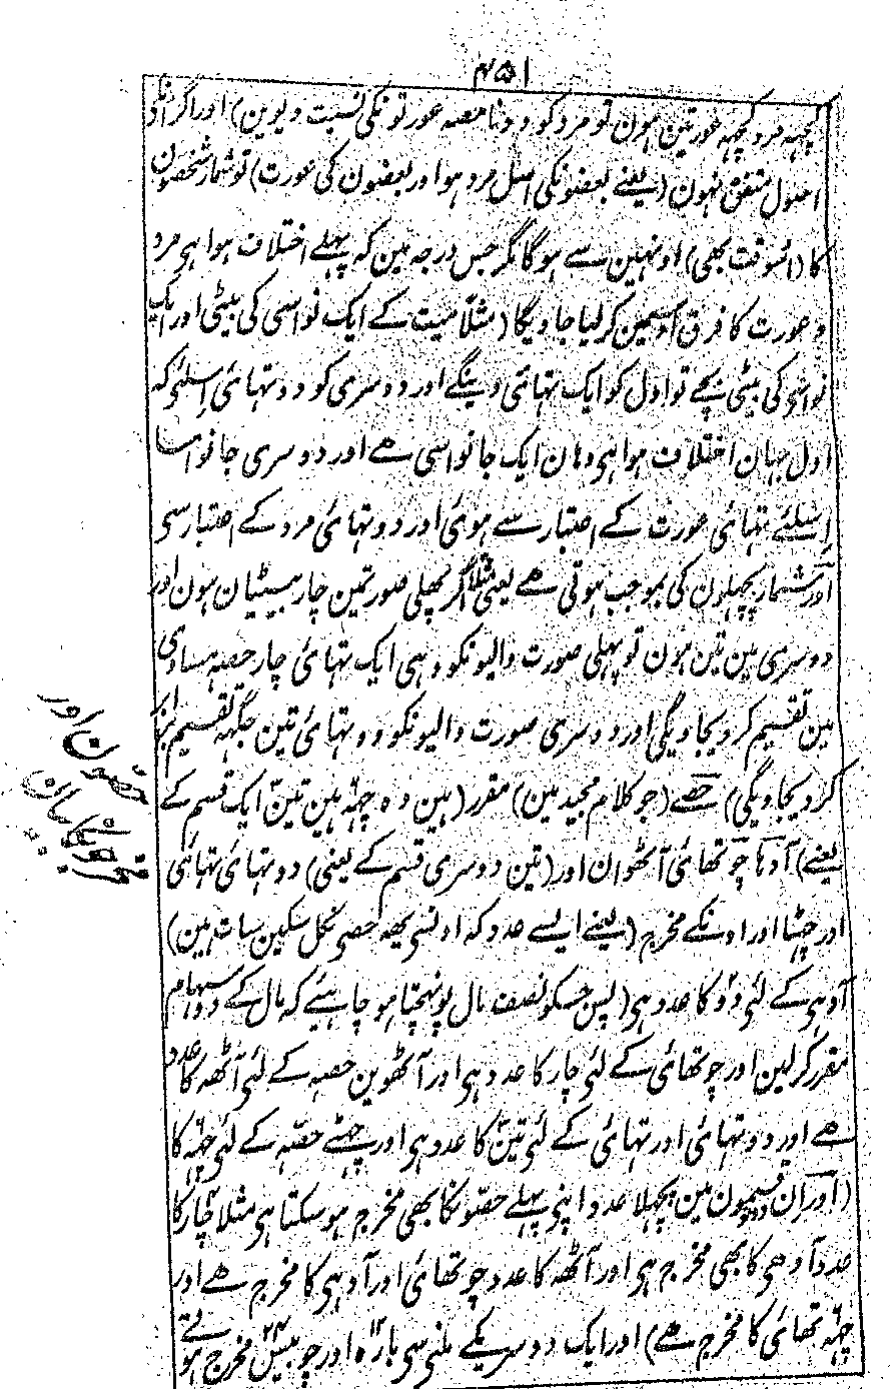 ۴۵۱
کچہہ مرد کچہہ عورتین ہون تو مرد کو دونا حصہ عورتونکی نسبت دیوین) اور اگر انکی
اصول متفق نہون (یعنے بعضونکی اصل مرد ہو اور بعضون کی عورت) تو شمار شخصون
کا (اسوقت بھی) اونہین سے ہوگا مگر جس درجہ مین کہ پہلے اختلاف ہوا ہی مرد
و عورت کا فرق اوسمین کر لیا جاویگا (مثلاً میت کے ایک نواسی کی بیٹی اور ایک
نواسہ کی بیٹی بچے تو اول کو ایک تہائی دینگے اور دوسری کو دو تہائی اسلئے کہ
اول جہان اختلاف ہوا ہی وہان ایک جا نواسی ہے اور دوسری جا نواسا
اسلئے تہائی عورت کے اعتبار سے ہوئی اور دو تہائی مرد کے اعتبار سی
اور شمار پچہلون کی بموجب ہوتی ہے یعنی مثلاً اگر پچھلی صورتمین چار بیٹیان ہون اور
دوسری مین تین ہون تو پہلی صورت والیونکو وہی ایک تہائی چار حصہ مساوی
مین تقسیم کر دیجاویگی اور دوسری صورت والیونکو دو تہائی تین جگہہ تقسیم برابر
کر دیجاویگی) حصے (جو کلام مجید مین) مقرر (ہین وہ چہہ ہین تین ایک قسم کے
یعنے) آدہا چوتھائی آٹھوان اور (تین دوسری قسم کے یعنی) دو تہائی تہائی
اور چہٹا اور اونکے مخرج (یعنے ایسے عدد کہ اونسی یہہ حصی نکل سکین سات ہین)
آدہی کے لئی دو کا عدد ہی (پس جسکو نصف مال پونہچتا ہو چاہیئے کہ مال کے دو سہام
مقرر کرلین اور چوتھائی کے لئی چار کا عدد ہی اور آٹھوین حصہ کے لئی آٹھہ کا عدد
ہے اور دو تہائی اور تہائی کے لئی تین کا عدد ہی اور چہٹے حصہ کے لئی چہہ کا
(اور ان دو قسمون مین پچہلا عدد اپنی پہلے حصونکا بھی مخرج ہو سکتا ہی مثلاً چار کا
عدد آدھی کا بھی مخرج ہی اور آٹھہ کا عدد چوتھائی اور آدہی کا مخرج ہے اور
چہہ تہائی کا مخرج ہے) اور ایک دوسریکے ملنی سی بارہ ۱۲ اور چوبیس ۲۴ مخرج ہوتے
حصون اور
مخرجونکا بیان